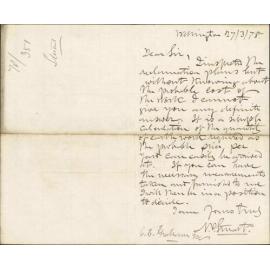 Wellington 27/3/78
Dear Sir,
I inspected the
reclamation plans but
without knowing about
the probable cost of
the work I cannot
give you any definite
answer. It is a simple
calculation of the quantity
of earth work required as
the probable price per
yard can easily be judged
at. If you can have
the necessary measurements
taken out & furnished to me
I will then be in a position
to decide.
I am Yours truly
78/
351